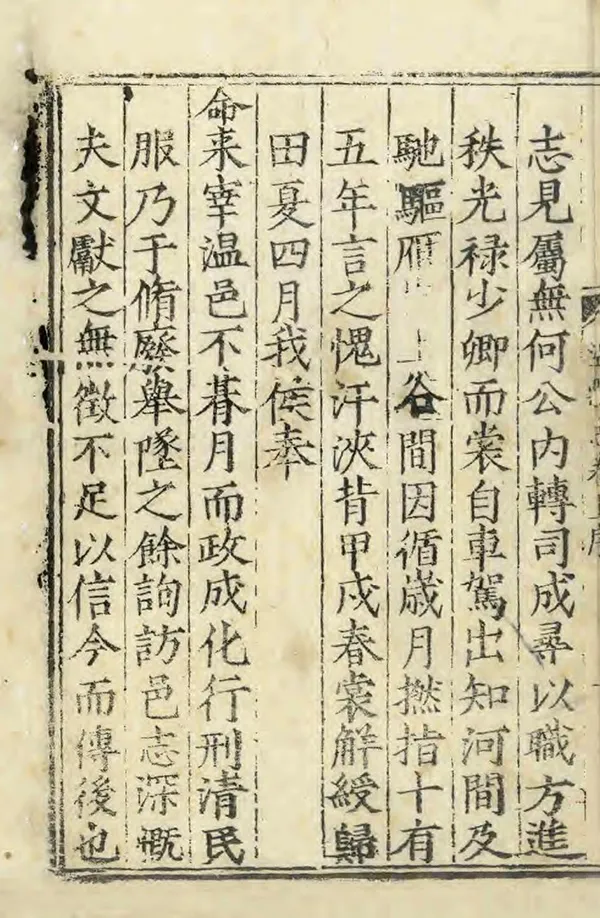 志見屬無何公内轉司成尋以職方進
秩光禄少卿而裳自車駕出知河間及
馳驅雁 上谷間因循歲月撚指十有
五年言之愧汗浹背甲戌春裳觧綬歸
田夏四月我侯奉
命来宰温邑不朞月而政成化行刑清民
服乃于脩廢舉墜之餘詢訪邑志深慨
夫文獻之無徵不足以信今而傳後也